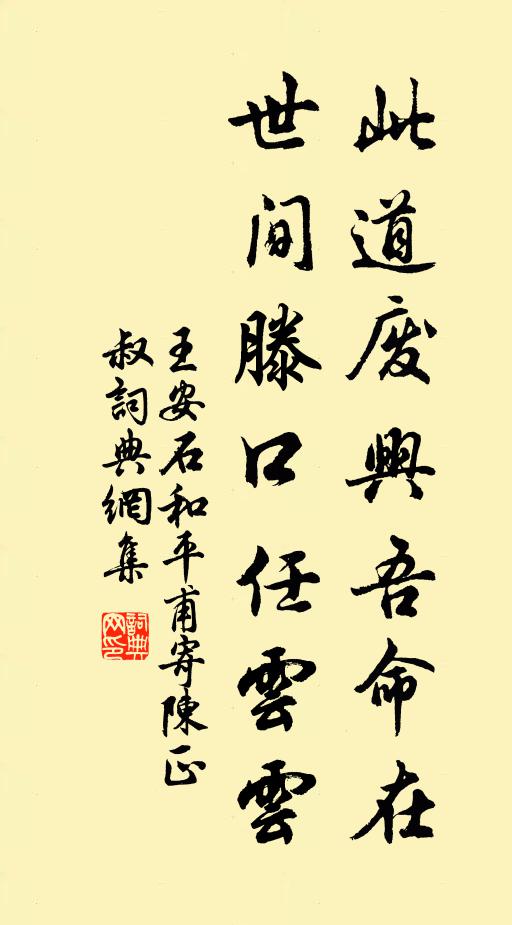 此道废興吾命在
世间滕口任雲雲
王安石和平甫寄陳正
叔詞典網集
詞典
网印